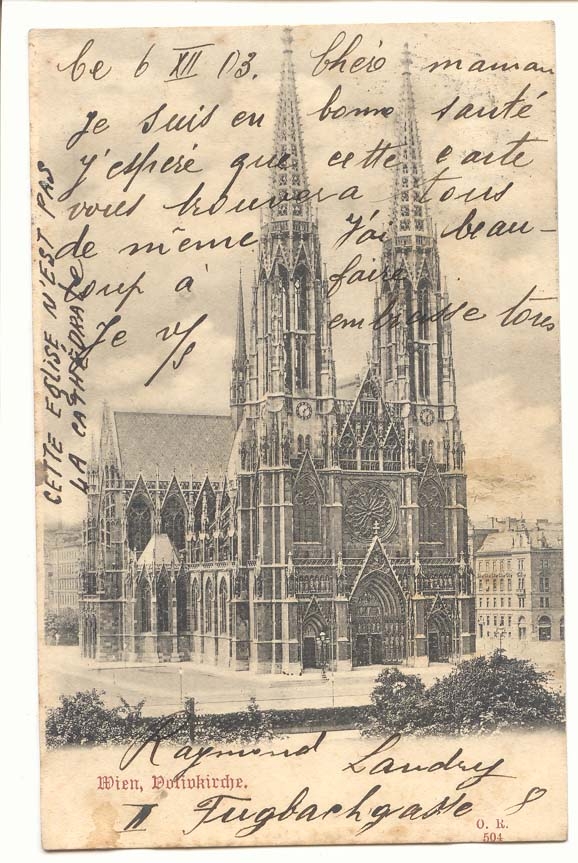 Ce 6 XII 03. Chère maman
Je suis en bonne santé
j'espère que cette carte
vous trouvera tous
de même J'ai beau-
coup à faire
Je v/s embrasse tous
CETTE EGLISE N'EST PAS
LA CATHÉDRALE
Raymond Landry
Wien, Votivkirche.
II Fugbachgasse 8
O. K.
504